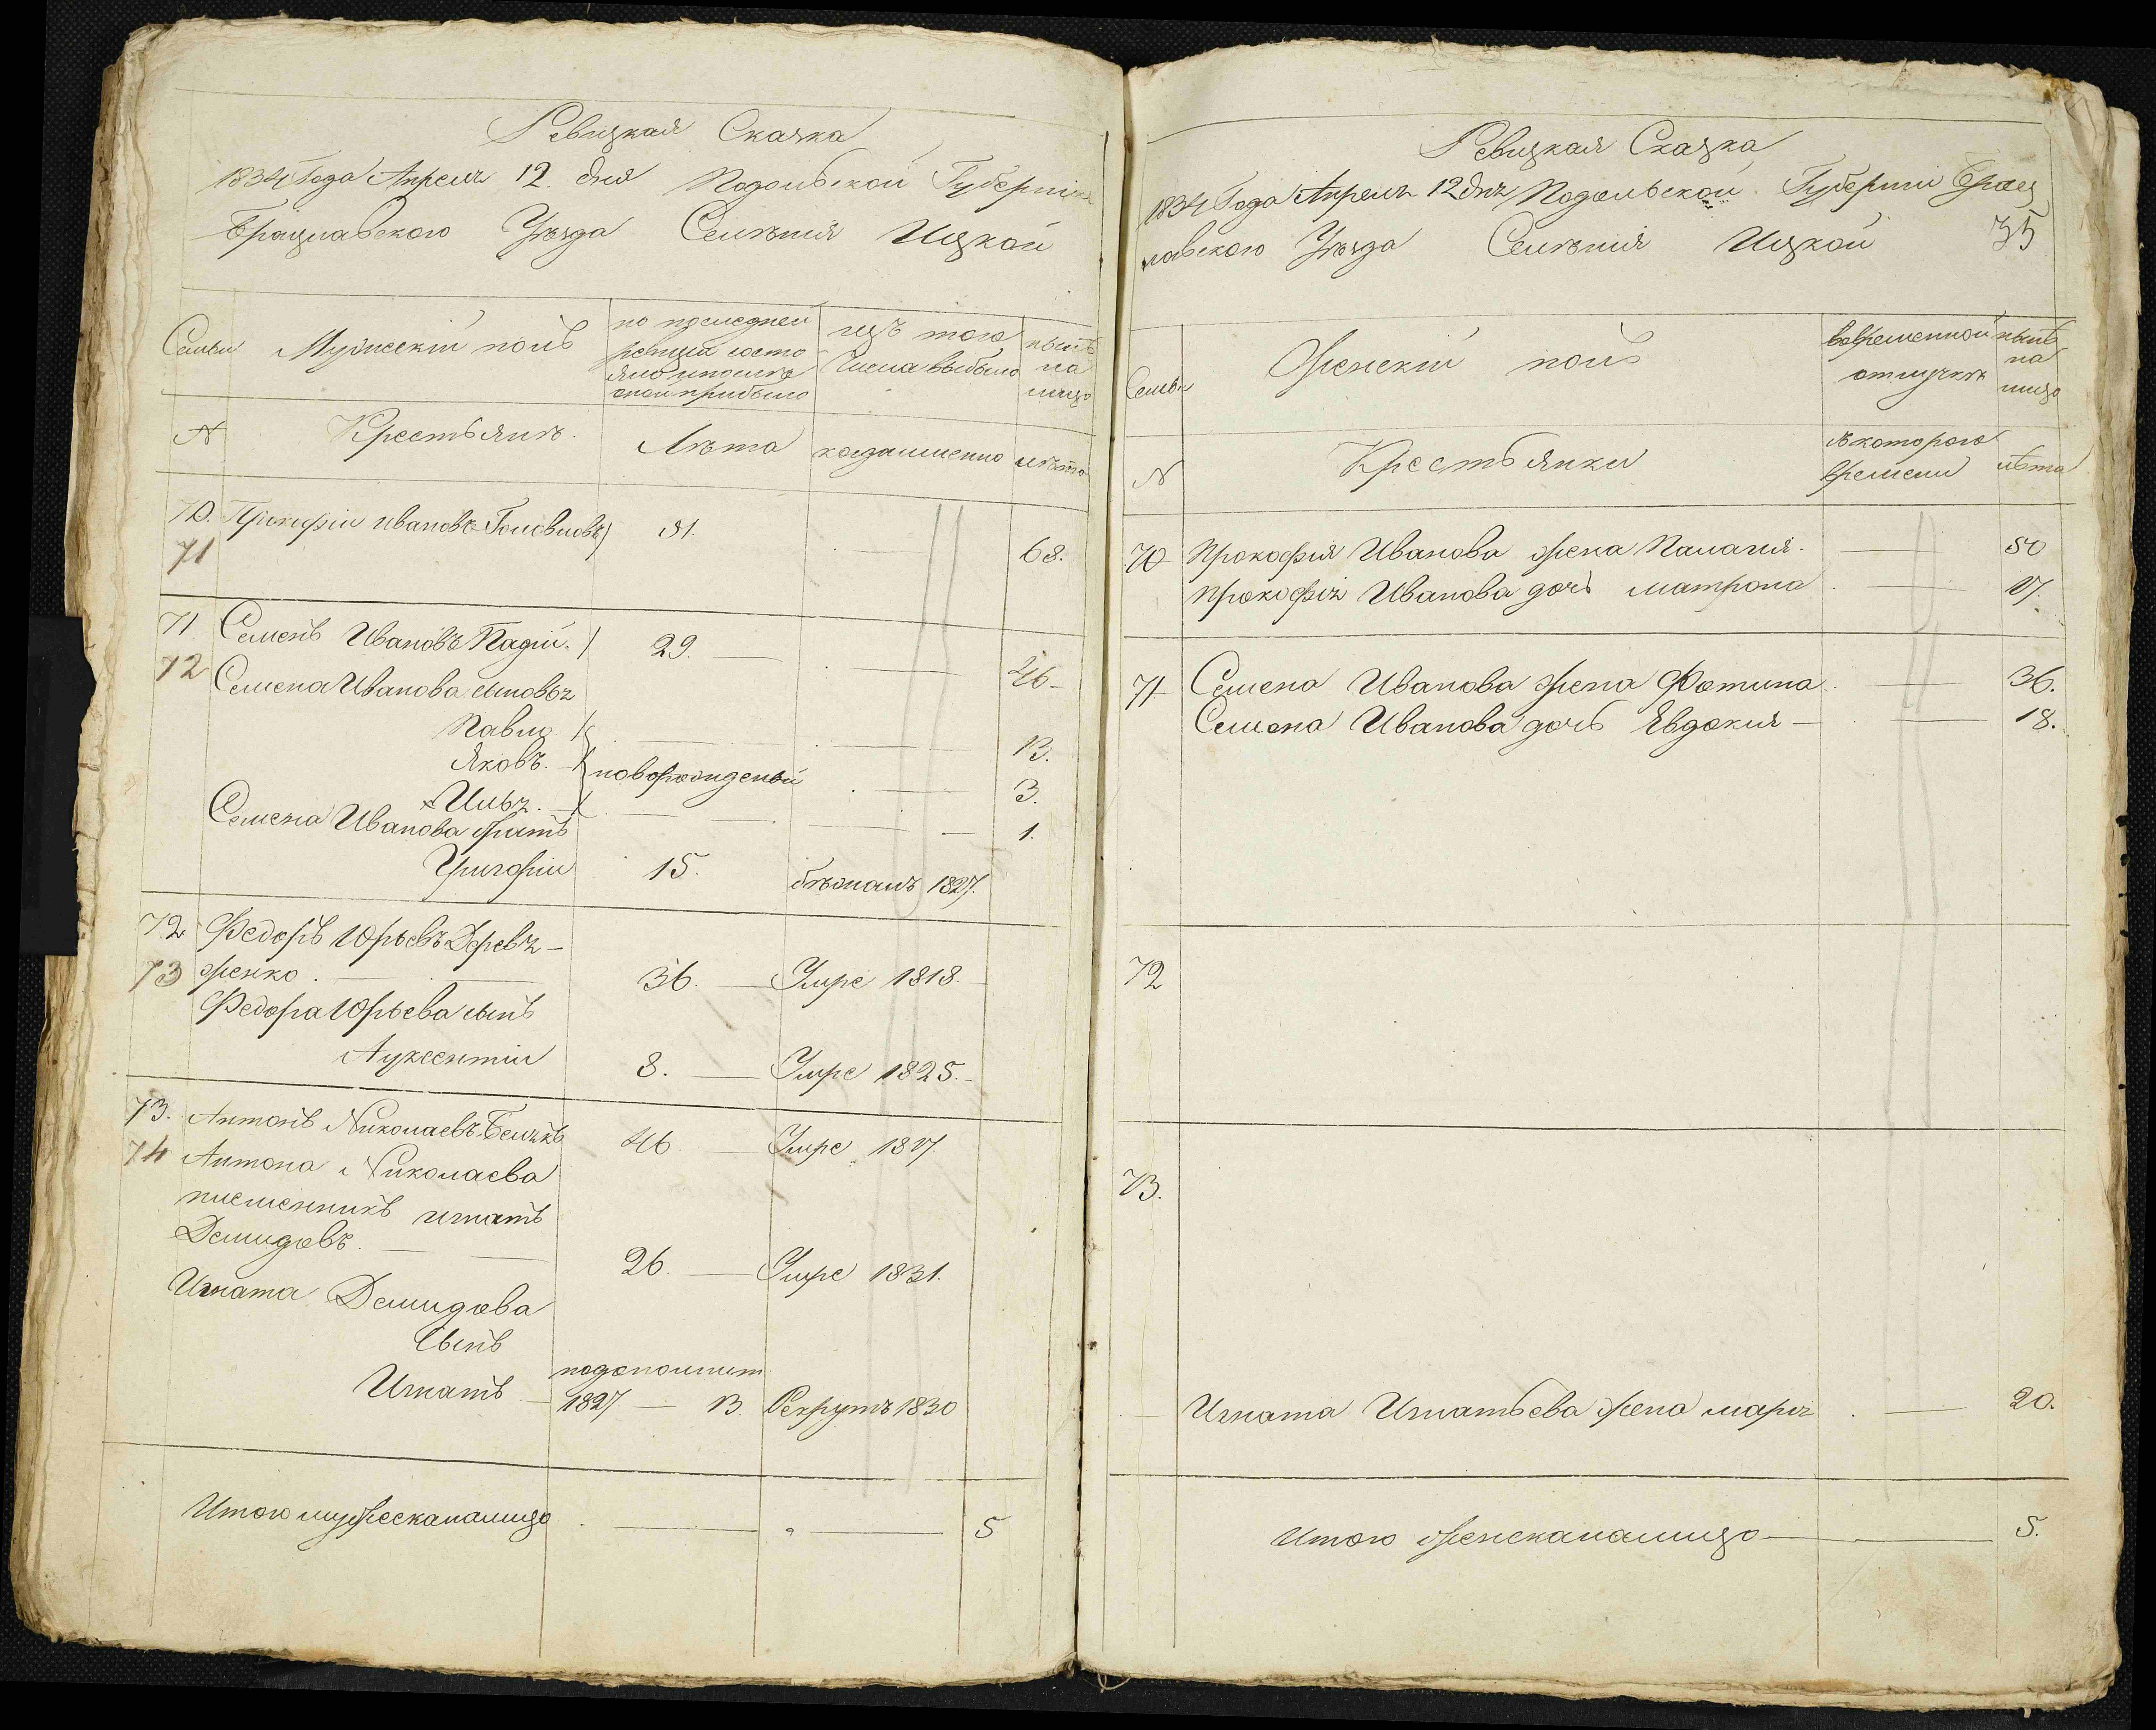 Ревизкая Сказка
1834 Года Апреля 12. дня Подольской Губернии
Брацлавского Уѣзда Селѣния Ицкой
Семьи Мужескій полъ
по последней ревизіи состо
яло и после оной прибыло
изъ того числа выбыло
нынѣ на лицо
N Крестьянѣ. Лѣта когда именно лѣта
70. Прокофій Ивановъ 51. 68.
71
71 Семенъ Ивановъ Палій. 29. 46
72 Семена Иванова сыновья
Павло 13.
Яковъ. новорожденый 3.
Илья. 1.
Семена Иванова братъ
Григорій 15. бѣжалъ 1827.
72 Федоръ Юрьевъ Деревя-
73 женко. 36. Умре 1818.
Федора Юрьева сынъ
Ауксентій 8. Умре 1825.
73. Антонъ Николаевъ 46 Умре 1827.
74 Антона Николаева
племенникъ Игнатъ
Демидовъ. 26. Умре 1831.
Игната Демидова
Сынъ
Игнатъ 1827 13. Рекрутъ 1830
Итого мужеска на лицо 5
Ревизкая Сказка
1834 Года Апреля 12 дня Подольской Губерніи Брац
лавского Уѣзда Селѣнія Ицкой 35
Семьи Женскій полъ
во временной отлучкѣ
нынѣ на лицо
N Крестьянки
съ которого времени лѣта
70 Прокофія Иванова жена Палагія. 50
Прокофія Иванова дочь Матрона 17.
71 Семена Иванова жена Фотина 36.
Семена Иванова дочь Явдокия 18.
72
73.
Игната Игнатьева жена Маря 20.
Итого женска на лицо 5.